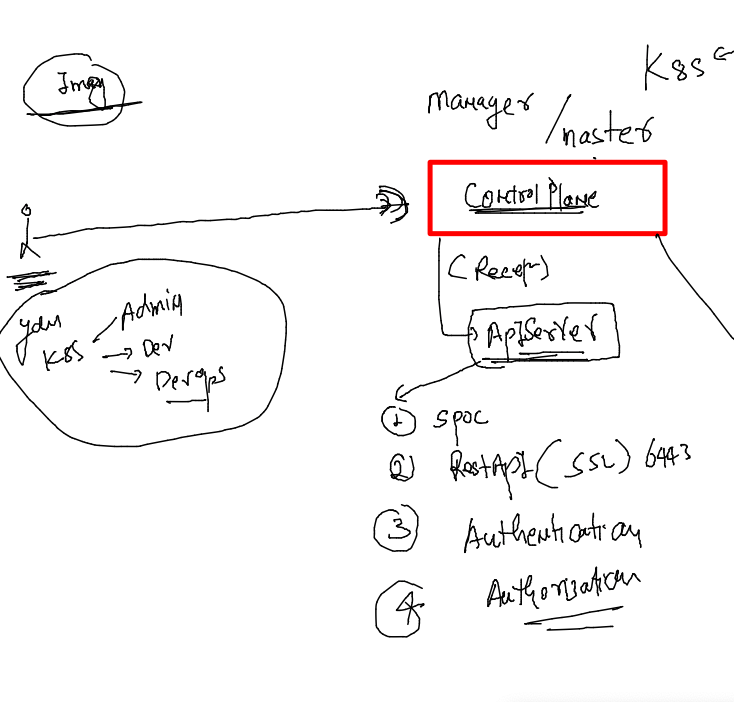 K8s
Imag
Manager
/master
Control Plane
(Recep)
ApIServer
Admin
K8S
Dev
Devops
1 SPOC
2 RestApI (SSL) 6443
3 Authentication
4 Authorization